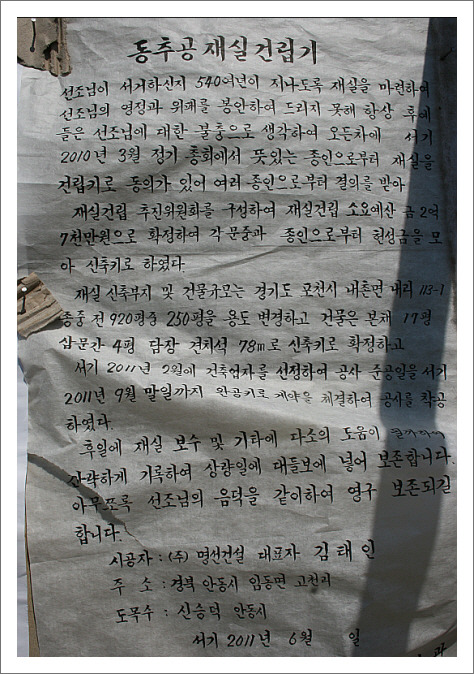 동추공 재실건립기
선조님이 서거하신지 540여년이 지나도록 재실을 마련하여
선조님의 영정과 위패를 봉안하여 드리지 못해 항상 후예
들은 선조님에 대한 불충으로 생각하여 오든차에 서기
2010년 3월 정기 총회에서 뜻있는 종인으로부터 재실을
건립키로 동의가 있어 여러 종인으로부터 결의를 받아
재실건립 추진위원회를 구성하여 재실건립 소요예산 금 2억
7천만원으로 확정하여 각 문중과 종인으로부터 헌성금을 모
아 신축키로 하였다.
재실 신축부지 및 건물규모는 경기도 포천시 내촌면 내리 113-1
종중 전 920평중 250평을 용도 변경하고 건물은 본채 17평
삽문간 4평 담장 견치석 78m로 신축키로 확정하고
서기 2011년 2월에 건축업자를 선정하여 공사 준공일을 서기
2011년 9월 말일까지 완공키로 계약을 체결하여 공사를 착공
하였다.
후일에 재실 보수 및 기타에 다소의 도움이 될까하여
간략하게 기록하여 상량일에 대들보에 넣어 보존합니다.
아무쪼록 선조님의 음덕을 같이하여 영구 보존되길
합니다.
시공자 : (주) 명선건설 대표자 김태인
주 소 : 경북 안동시 임동면 고천리
도목수 : 신승덕 안동시
서기 2011년 6월 일